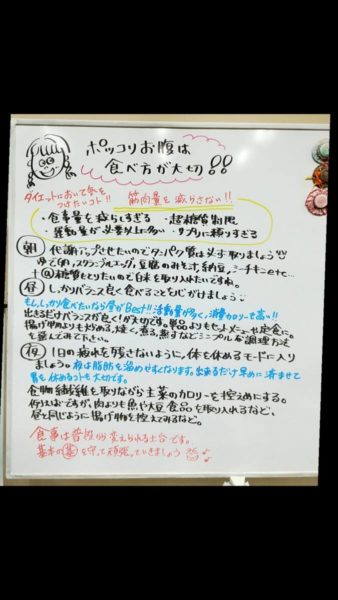 ポッコリお腹は
食べ方が大切!!
ダイエットにおいて気を
つけたいコト!!
筋肉量を減らさない!!
・食事量を減らしすぎる ・超糖質制限
・運動量が必要以上に多い ・サプリに頼りすぎる
朝 代謝アップさせたいのでタンパク質は必ず取りましょう
ゆで卵、スクランブルエッグ、豆腐のみそ汁、納豆、シーチキンetc…
+ 糖質もとりたいので白米を取り入れたいですね。
昼 しっかりバランス良く食べることを心がけましょう
もし、しっかり食べたいなら昼がBest!!活動量が多く、消費カロリーも高い!!
出きるだけバランスが良く!が大切です。単品よりもセットメニューや定食に。
揚げ物よりも炒める、焼く、煮る、蒸すなどシンプルな調理方法
を選んでみて下さい。
夜 1日の疲れを残さないように、体を休めるモードに入り
ましょう。夜は脂肪を溜めやすくなります。出来るだけ早めに済ませて
胃を休めるコトも大切です。
食物繊維を取りながら主菜のカロリーを控えめにする。
例えばですが、肉よりも魚や大豆食品を取り入れるなど、
昼と同じように揚げ物を控えてみるなど。
食事は普段から変えられる土台です。
基本の を守って頑張っていきましょう